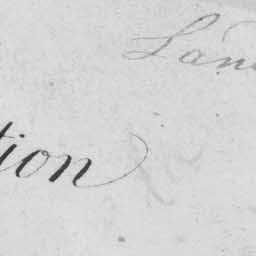 Lan
tion